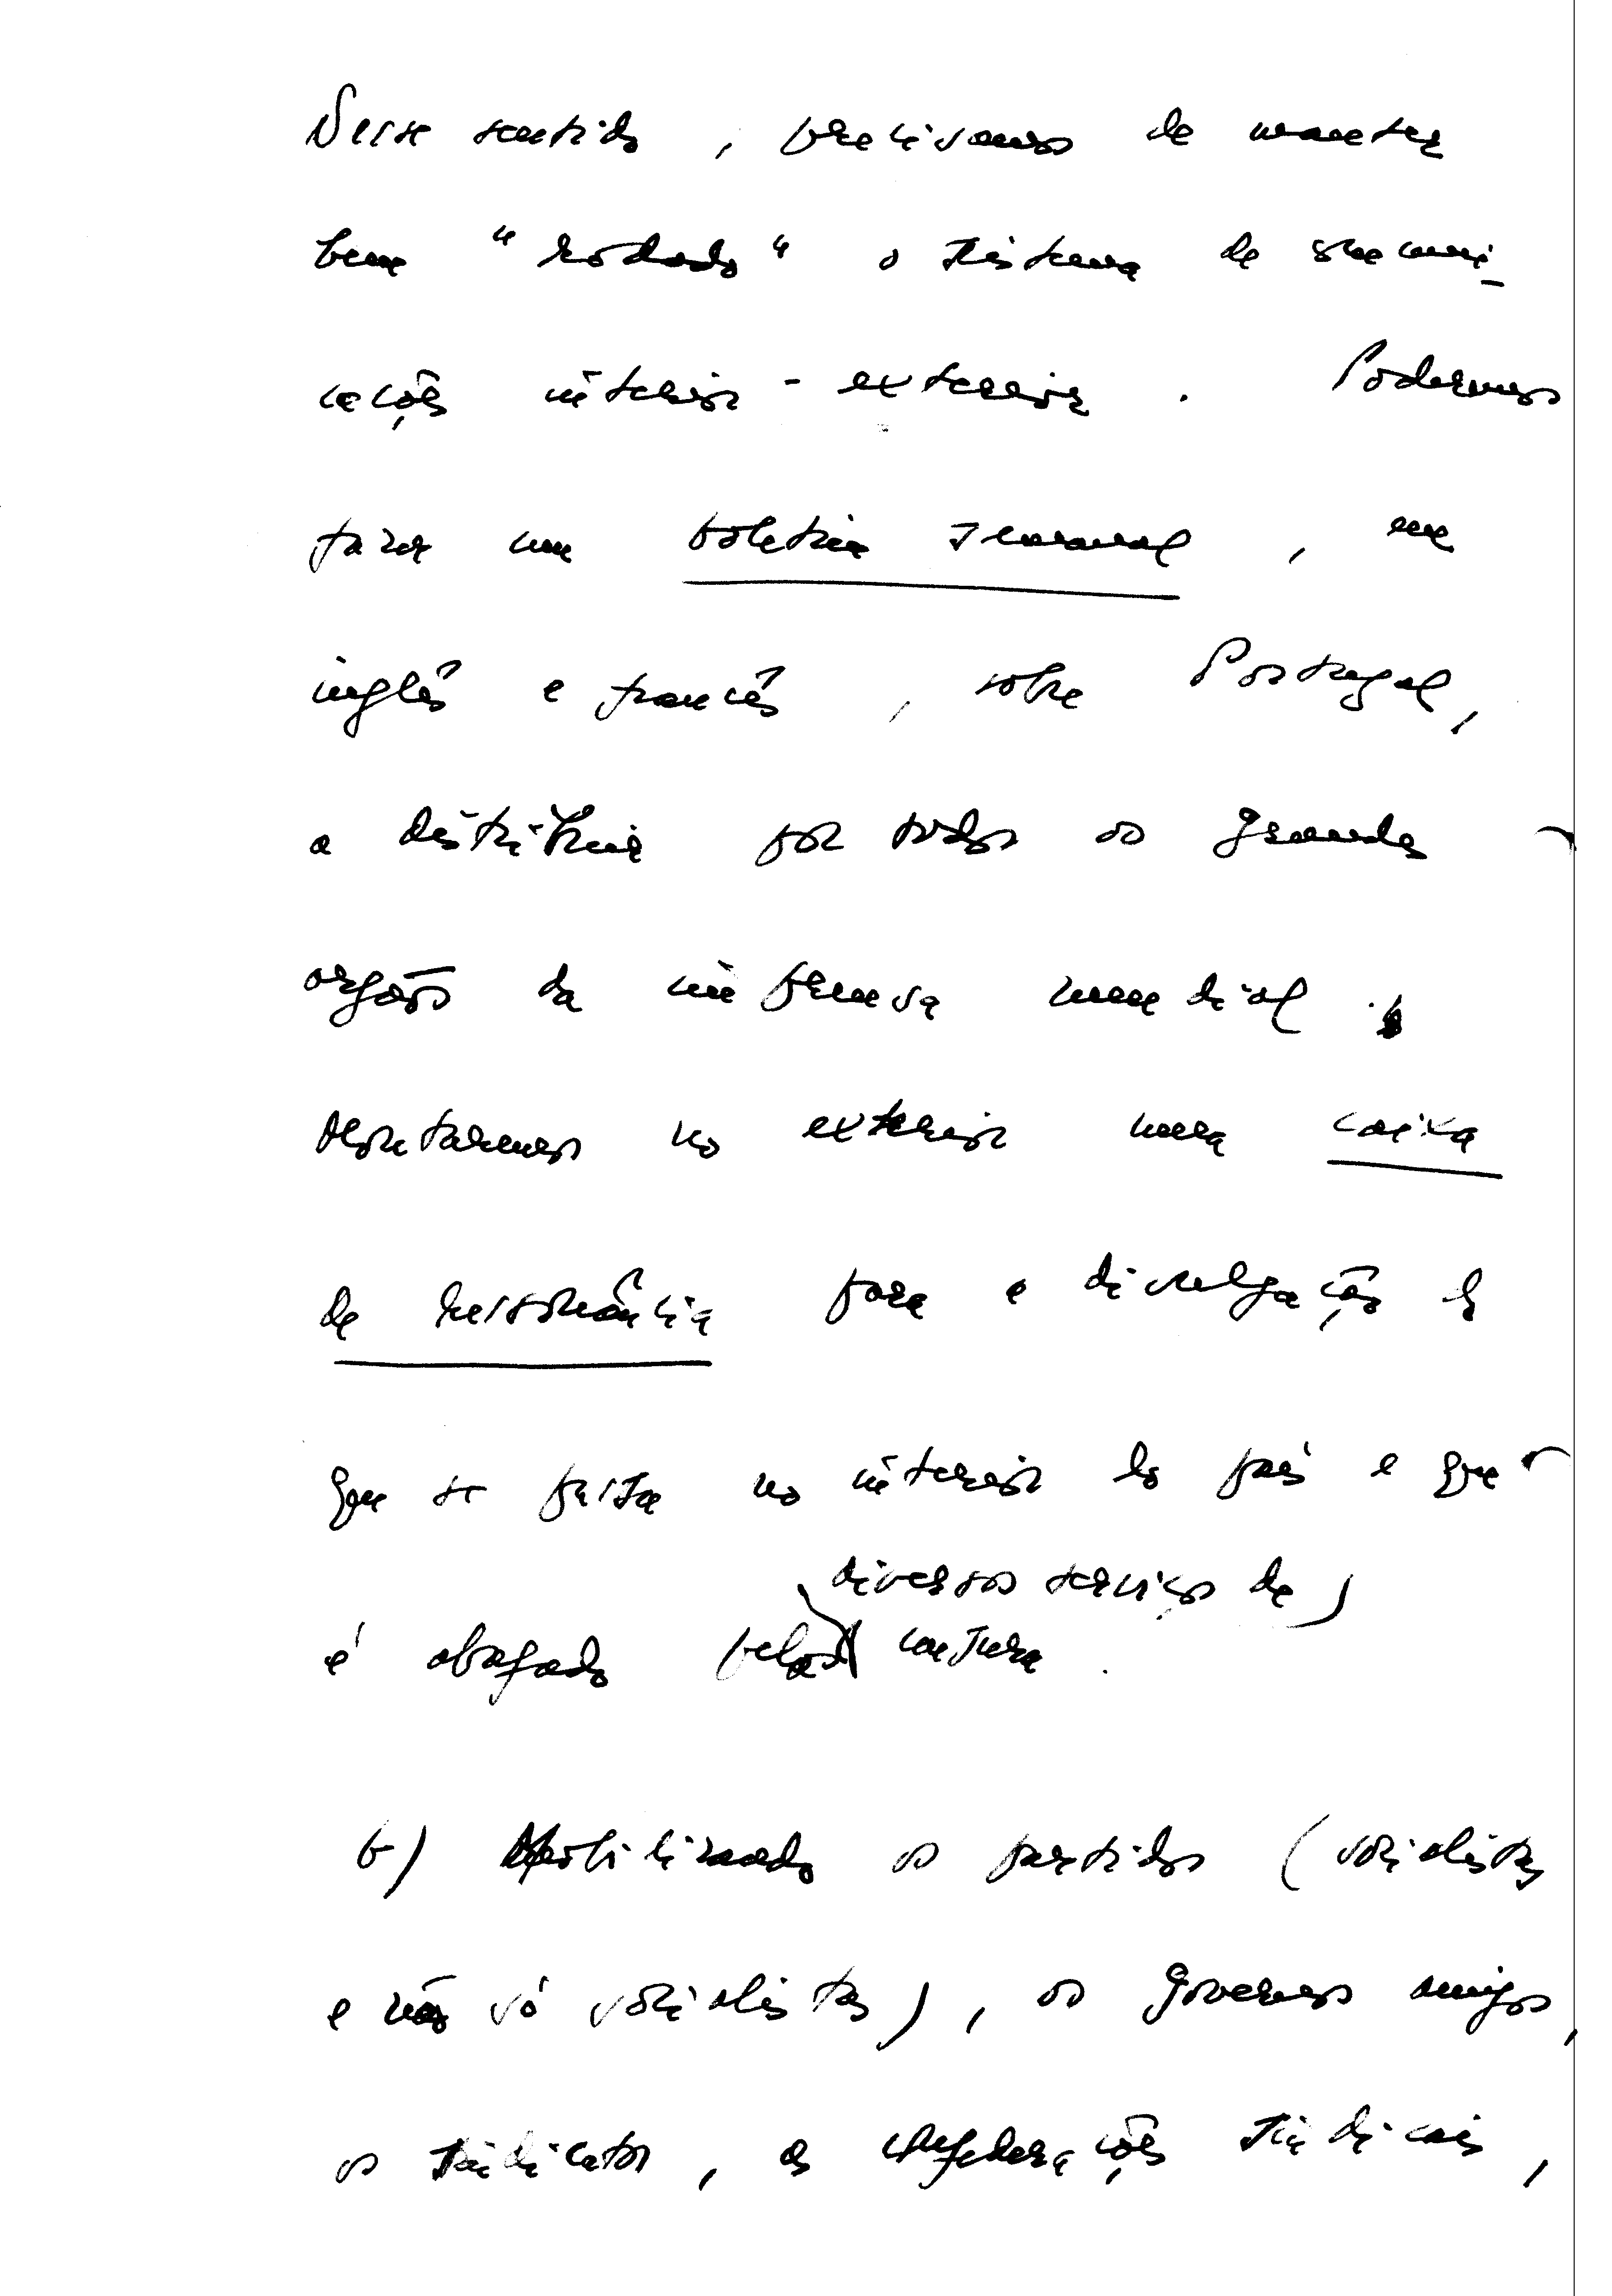 Nesse sentido, precisamos de manter
bem "rodado" o sistema de comuni-
cações interior - exterior. Poderemos
fazer um boletim semanal, em
inglês e francês, sobre Portugal,
a distribuir por todos os grandes
orgãos da imprensa mundial.
Montaremos no exterior uma caixa
de ressonância para a divulgação do
que se passa no interior do país e que
diversos serviços de
é abafado pelos censura.
b) Mobilizando os partidos (socialistas
e não só socialistas), os governos amigos,
os sindicatos, as confederações sindicais,